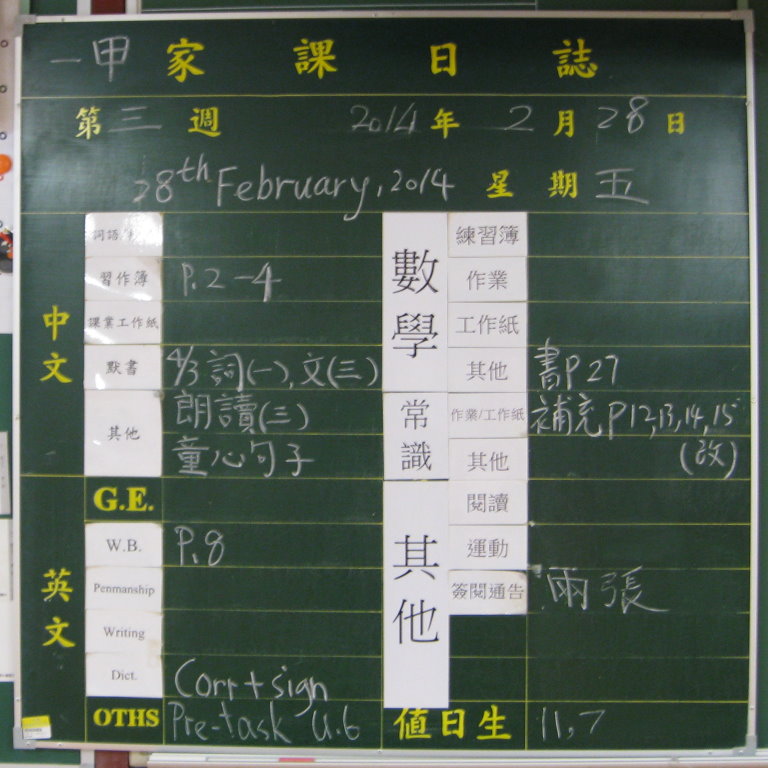 一甲家課日誌
第三週 2014年2月28日
28th February, 2014 星期五
中文
詞語
習作簿 P.2-4
課業工作紙
默書 4/3 詞(一), 文(三)
其他 朗讀(三)
童心句子
英文
G.E.
W.B. P.8
Penmanship
Writing
Dict. Corr + sign
OTHS Pre-task U.6
數學
練習簿
作業
工作紙
其他 書P27
常識
作業/工作紙 補充P12,13,14,15
(改)
其他
其他
閱讀
運動
簽閱通告 兩張
值日生 11,7